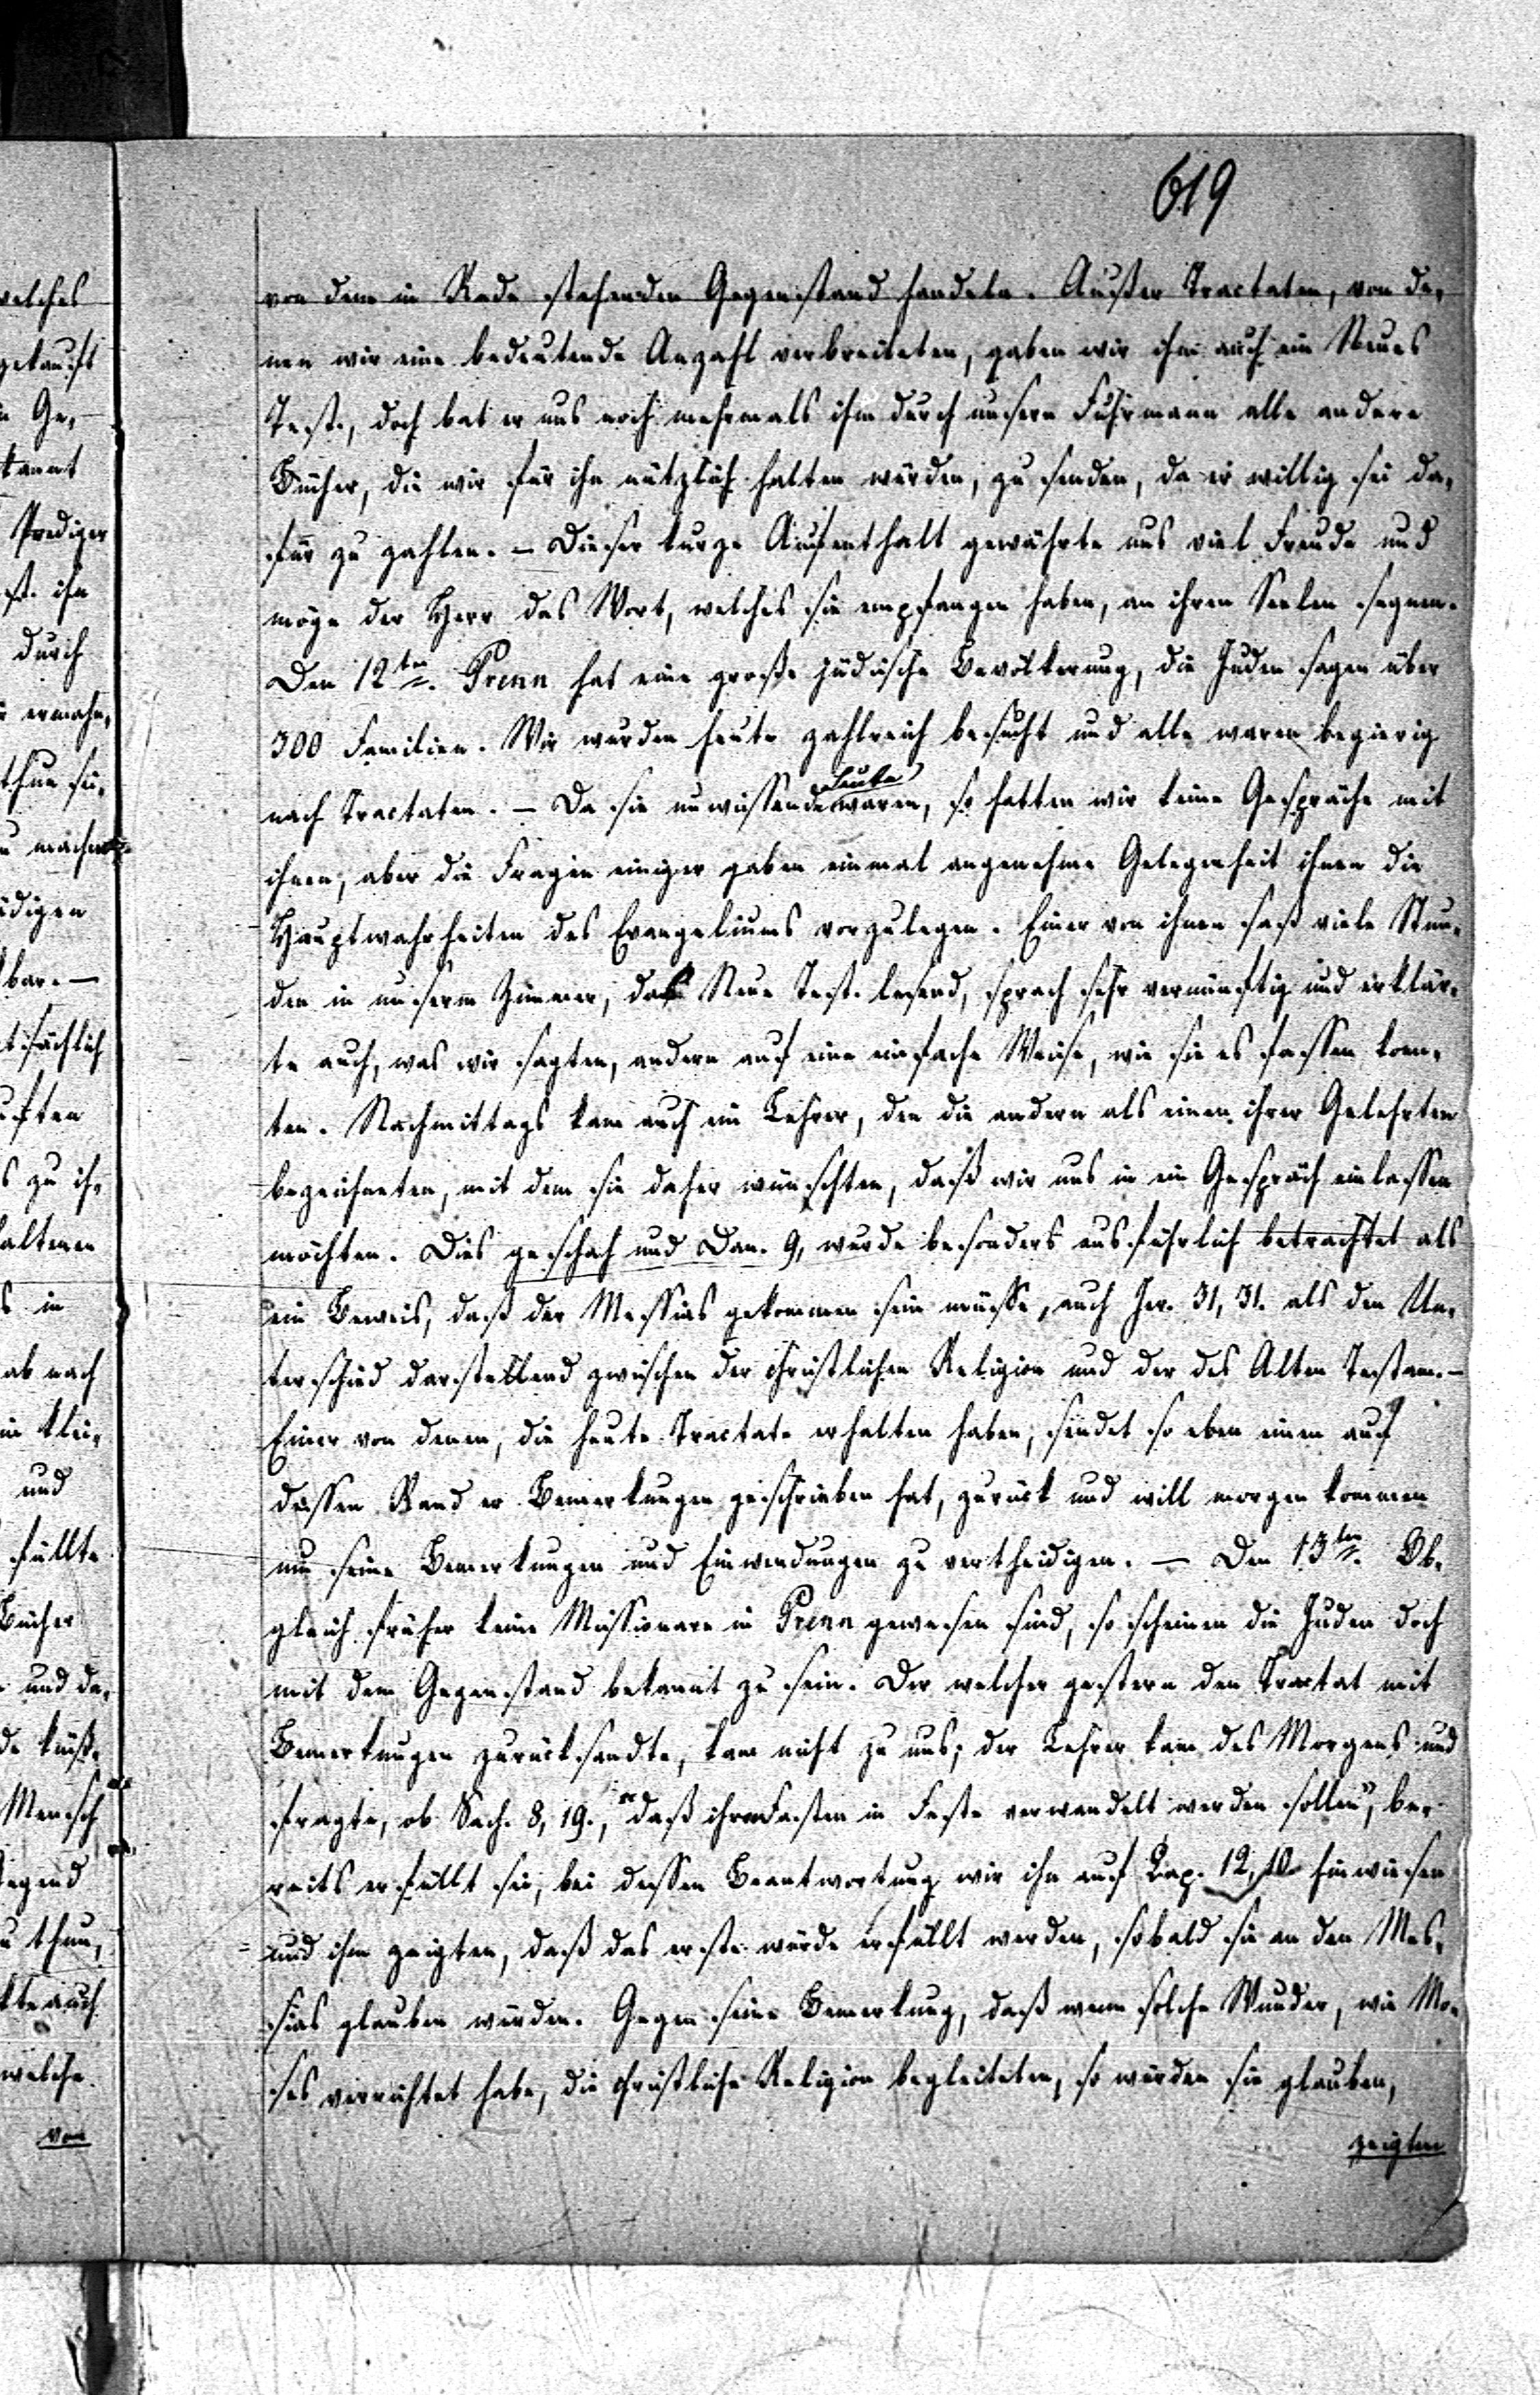 619
von dem in Rede stehenden Gegenstand handeln. Außer Tractaten, von de-
nen wir eine bedeutende Anzahl verbreiteten, gaben wir ihm auch ein Neues
Test., doch bat er uns noch mehrmals ihm durch unsern Fuhrmann alle andere
Bücher, die wir für ihn nützlich halten würden, zu senden, da er willig sei da-
für zu zahlen. – Dieser kurze Aufenthalt gewährte uns viel Freude und
möge der Herr das Wort, welches sie empfangen haben, an ihren Seelen segnen.
Den 12ten. Prenn hat eine große jüdische Bevölkerung, die Juden sagen über
300 Familien. Wir wurden heute zahlreich besucht und alle waren begierig
nach Tractaten. – Da sie unwissende Leute waren, so hatten wir keine Gespräche mit
ihnen, aber die Fragen einiger gaben einmal angenehme Gelegenheit ihnen die
Hauptwahrheiten des Evangeliums vorzulegen. Einer von ihnen saß viele Stun-
den in unserm Zimmer, das Neue Test. lesend, sprach sehr vernünftig und erklär-
te auch, was wir sagten, andern auf eine einfache Weise, wie sie es fassen konn-
ten. Nachmittags kam auch ein Lehrer, den die andern als einen ihrer Gelehrten
bezeichneten, mit dem sie daher wünschten, daß wir uns in ein Gespräch einlassen
möchten. Dies geschah und Dan. 9, wurde besonders ausführlich betrachtet als
ein Beweis, daß der Messias gekommen sein müsse, auch Jer. 31, 31. als den Un-
terschied darstellend zwischen der christlichen Religion und der des Alten Testam. –
Einer von denen, die heute Tractate erhalten haben, sendet so eben einen auf
dessen Rand er Bemerkungen geschrieben hat, zurück und will morgen kommen
um seine Bemerkungen und Einwendungen zu vertheidigen. – Den 13ten. Ob-
gleich früher keine Missionare in Prenn gewesen sind, so scheinen die Juden doch
mit dem Gegenstand bekannt zu sein. Der welcher gestern den Tractat mit
Bemerkungen zurücksandte, kam nicht zu uns; der Lehrer kam des Morgens und
fragte, ob Sach. 8, 19., "daß ihre Fasten in Feste verwandelt werden sollen", be-
reits erfüllt sei, bei dessen Beantwortung wir ihn auf Kap. 12, 10 hinwiesen
und ihm zeigten, daß das erste würde erfüllt werden, sobald sie an den Mes-
sias glauben würden. Gegen seine Bemerkung, daß wenn solche Wunder, wie Mo-
ses verrichtet habe, die christliche Religion begleiteten, so würden sie glauben,
zeigten